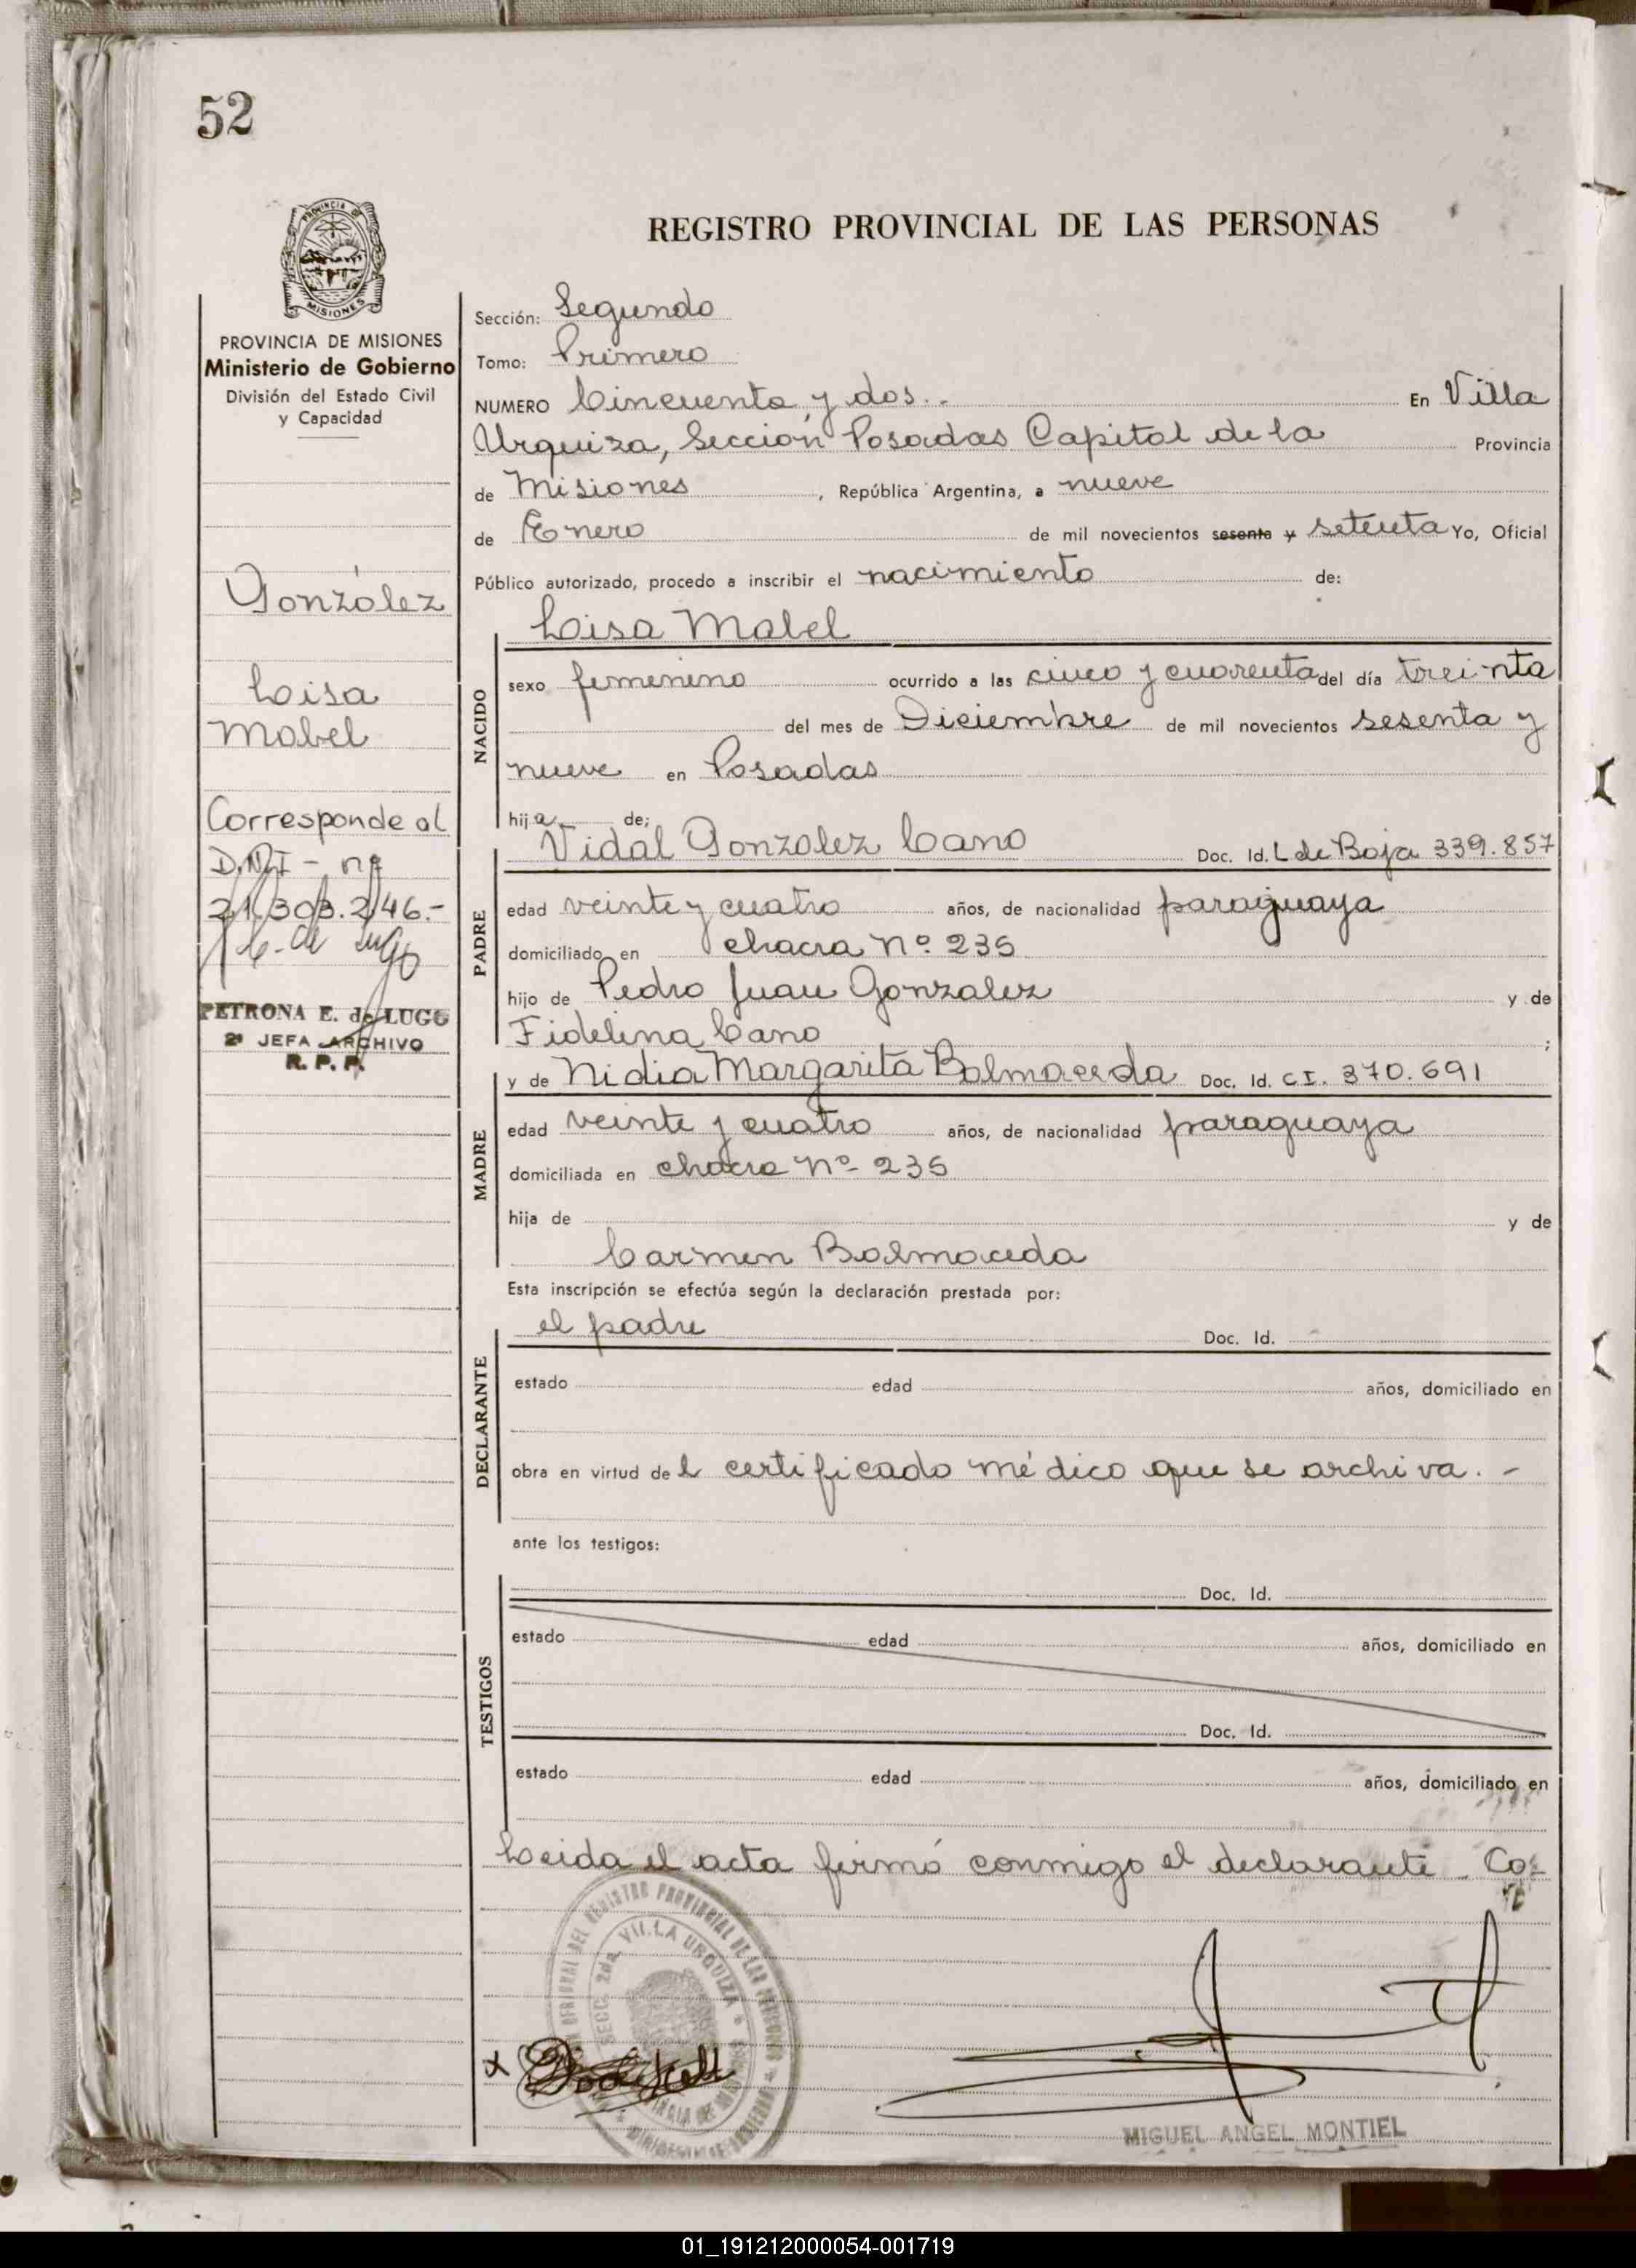 52
PROVINCIA DE
MISIONES
REGISTRO PROVINCIAL DE LAS PERSONAS
PROVINCIA DE MISIONES
Ministerio de Gobierno
División del Estado Civil
y Capacidad
González
Loisa
Mabel
Corresponde al
D.N.I - nº
21.303.246.-
PETRONA E. de LUGO
2ª JEFA ARCHIVO
R. P. P.
Sección: Segundo
Tomo: Primero
NUMERO Cincuenta y dos.- En Villa
Urquiza, Sección Posadas Capital de la Provincia
de Misiones, República Argentina, a nueve
de Enero de mil novecientos sesenta y setenta Yo, Oficial
Público autorizado, procedo a inscribir el nacimiento de:
Loisa Mabel
NACIDO
sexo femenino ocurrido a las cinco y cuarenta del día treinta
del mes de Diciembre de mil novecientos sesenta y
nueve en Posadas
hija de;
PADRE
Vidal Gonzalez Cano Doc. Id. L de Baja 339.857
edad veinte y cuatro años, de nacionalidad paraguaya
domiciliado en chacra Nº 235
hijo de Pedro Juan Gonzalez y de
Fidelina Cano ;
MADRE
y de Nidia Margarita Balmaceda Doc. Id. C.I. 370.691
edad veinte y cuatro años, de nacionalidad paraguaya
domiciliada en chacra Nº 235
hija de y de
Carmen Balmaceda
Esta inscripción se efectúa según la declaración prestada por:
DECLARANTE
el padre Doc. Id.
estado edad años, domiciliado en
obra en virtud del certificado médico que se archiva.-
ante los testigos:
TESTIGOS
Doc. Id.
estado edad años, domiciliado en
Doc. Id.
estado edad años, domiciliado en
Leida el acta firmó conmigo el declarante Co-
SECC. 2da. VILLA URQUIZA
MIGUEL ANGEL MONTIEL
01_191212000054-001719